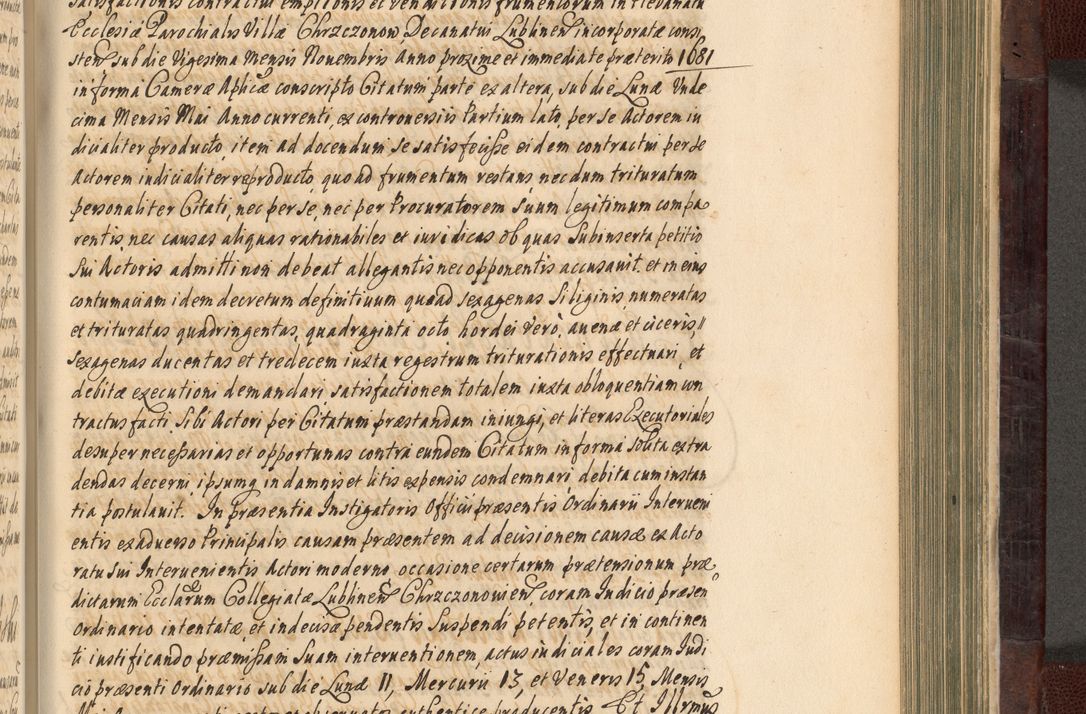 satisfactionis contractui emptionis et venditionis frumentorum in
Ecclesiæ Parochialis Villæ Chrzczonow Decanatui Lublinen incorporatæ consi
sten sub die Vigesima Mensis Nouembris Anno proxime et immediate præterito 1681
in forma Cameræ Aplicæ conscripto Citatum parte ex altera, sub die Lunæ Vnde
cima Mensis Mai Anno currenti, ex controuersiis Partium lato, per se Actorem iu
dicialiter producto, item ad docendum se satisfecisse eidem contractui per se
Actorem iudicialiter reproducto, quo ad frumentum restans, nec dum trituratum
personaliter Citati, nec per se, nec per Procuratorem suum legitimum compa
rentis, nec causas aliquas rationabiles et iuridicas ob quas subinserta petitio
sui Actoris admitti non debeat allegantis nec opponentis accusauit. et in eius
contumaciam idem decretum definitiuum quoad sexagenas Siliginis, numeratas
et trituratas quadringentas, quadraginta octo, hordei verò, auenæ et ciceris,
sexagenas ducentas et tredecem iuxta regestrum triturationis effectuari, et
debitæ executioni demandari, satisfactionem totalem iuxta obloquentiam con
tractus facti Sibi Actori per Citatum præstandam iniungi, et literas Executoriales
desuper necessarias et opportunas contra eundem Citatum in forma solita extra
dendas decerni, ipsumq in damnis et litis expensis condemnari, debita cum instan
tia postulauit. In præsentia Instigatoris Officii præsentis Ordinarii Interueni
entis ex aduerso Principalis causam præsentem ad decisionem causæ ex Acto
ratu sui Interuenientis Actori moderno, occasione certarum prætensionum præ
dictarum Ecclarum Collegiatæ Lublinen Chrzczonowien, coram Iudicio præsen
Ordinario intentatæ, et indecisæ pendentis Suspendi petentis, et in continen
ti iustificando præmissam suam interuentionem, actus iudiciales coram Iudi
cio præsenti Ordinario sub die Lunæ 11, Mercurii 13, et Veneris 15, Mensis
authentice producentis Et Illrmus